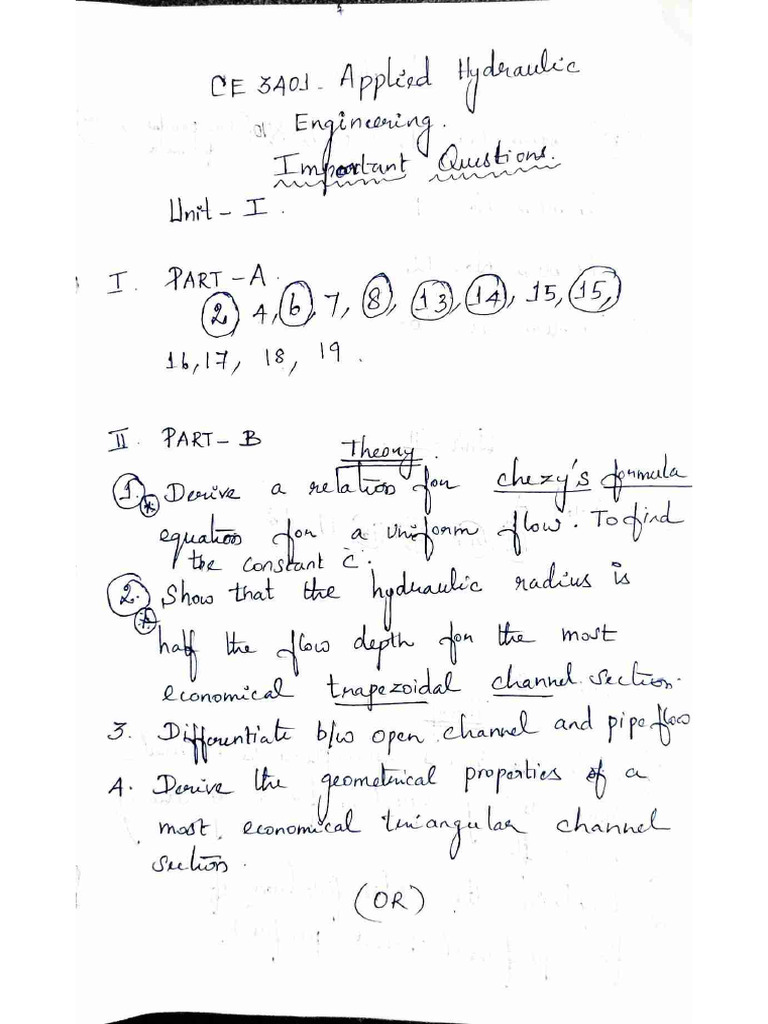 CE 3401 - Applied Hydraulic
Engineering.
Important Questions.
Unit - I.
I. PART - A.
2, 4, 6, 7, 8, 13, 14, 15, 15,
16, 17, 18, 19.
II. PART - B Theory.
1. * Derive a relation for chezy's formula
equation for a uniform flow. To find
the constant C.
2. * Show that the hydraulic radius is
half the flow depth for the most
economical trapezoidal channel section.
3. Differentiate b/w open channel and pipe flow
4. Derive the geometrical properties of a
most economical triangular channel
section.
(OR)